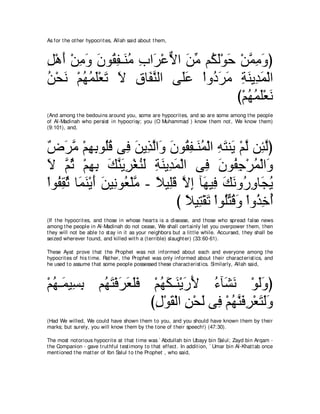 As for the other hypocrites, Allah said about them,
وَمِمَّنْ حَوْلَكُمْ مِّنَ الاٌّعْرَابِ مُنَـفِقُونَ وَمِنْ أَهْلِ
الْمَدِينَةِ مَرَدُواْ عَلَى النَّفَاقِ لاَ تَعْلَمُهُمْ نَحْنُ
نَعْلَمُهُمْ)
(And among the bedouins around you, some are hypocrites, and so are some among the people
of Al-Madinah who persist in hypocrisy; you (O Muhammad ) know them not, We know them)
(9:101), and,
(لَّئِن لَّمْ يَنتَهِ الْمُنَـفِقُونَ وَالَّذِينَ فِى قُلُوبِهِمْ مَّرَضٌ
وَالْمُرْجِفُونَ فِى الْمَدِينَةِ لَنُغْرِيَنَّكَ بِهِمْ ثُمَّ لاَ
يُجَاوِرُونَكَ فِيهَآ إِلاَّ قَلِيلاً - مَّلْعُونِينَ أَيْنَمَا ثُقِفُواْ
أُخِذُواْ وَقُتِّلُواْ تَقْتِيلاً )
(If the hypocrites, and those in whose hearts is a disease, and those who spread false news
among the people in Al-Madinah do not cease, We shall certainly let you overpower them, then
they will not be able to stay in it as your neighbors but a little while. Accursed, they shall be
seized wherever found, and killed with a (terrible) slaughter) (33:60-61).
These Ayat prove that the Prophet was not informed about each and everyone among the
hypocrites of his time. Rather, the Prophet was only informed about their characteristics, and
he used to assume that some people possessed these characteristics. Similarly, Allah said,
(وَلَوْ نَشَآءُ لأَرَيْنَـكَهُمْ فَلَعَرَفْتَهُم بِسِيمَـهُمْ
وَلَتَعْرِفَنَّهُمْ فِى لَحْنِ الْقَوْلِ)
(Had We willed, We could have shown them to you, and you should have known them by their
marks; but surely, you will know them by the tone of their speech!) (47:30).
The most notorious hypocrite at that time was `Abdullah bin Ubayy bin Salul; Zayd bin Arqam -
the Companion - gave truthful testimony to that effect. In addition, `Umar bin Al-Khattab once
mentioned the matter of Ibn Salul to the Prophet , who said,